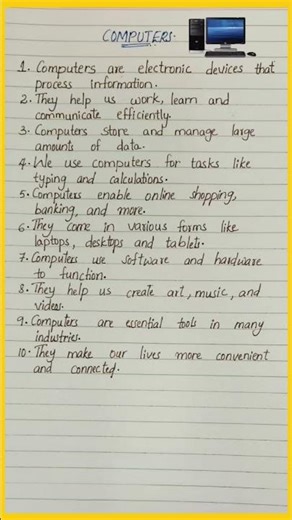 COMPUTERS.
1. Computers are electronic devices that
process information.
2. They help us work, learn and
communicate efficiently.
3. Computers store and manage large
amounts of data.
4. We use computers for tasks like
typing and calculations.
5. Computers enable online shopping,
banking, and more.
6. They come in various forms like
laptops, desktops and tablets.
7. Computers use software and hardware
to function.
8. They help us create art, music, and
videos.
9. Computers are essential tools in many
industries.
10. They make our lives more convenient
and connected.